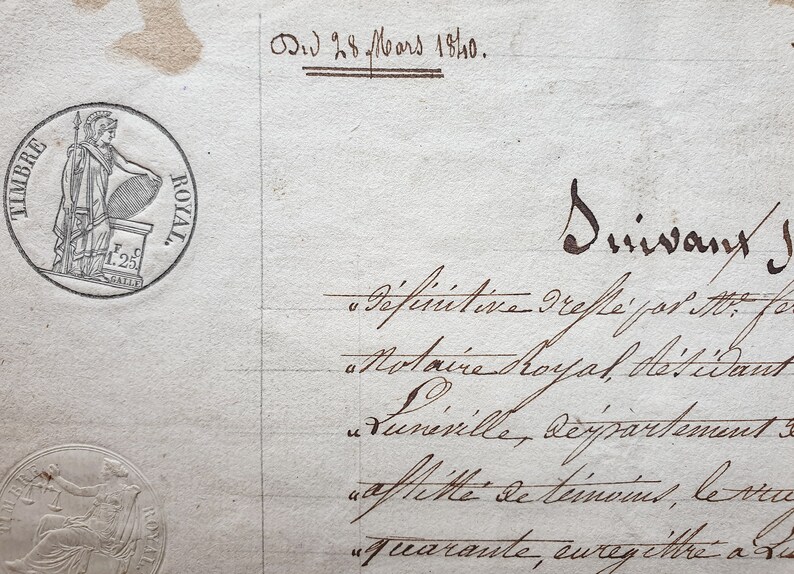 Du 28 Mars 1840.
TIMBRE ROYAL.
F C
1.25.
GALLE
Suivant
„ définitive dressé par Mr. fer
„ Notaire Royal, résidant
„ Lunéville, département d
„ assisté de témoins, le ving
„ quarante, enregistré a Lu
TIMBRE ROYAL